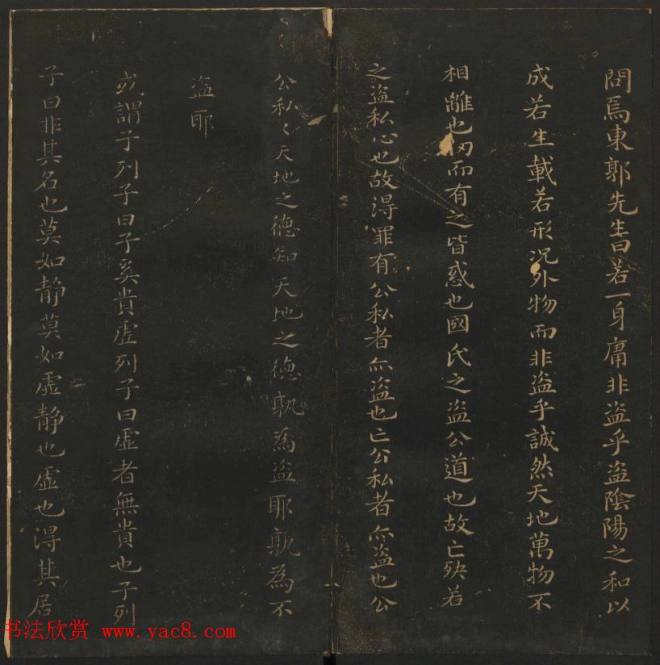 問焉東郭先生曰若一身庸非盜乎盜陰陽之和以
成若生載若形況外物而非盜乎誠然天地萬物不
相離也仞而有之皆惑也國氏之盜公道也故亡殃若
之盜私心也故得罪有公私者亦盜也亡公私者亦盜也公
公私〻天地之德知天地之德孰為盜耶孰為不
盜耶
或謂子列子曰子奚貴虛列子曰虛者無貴也子列
子曰非其名也莫如靜莫如虛靜也虛也得其居
书法欣赏 www.yac8.com